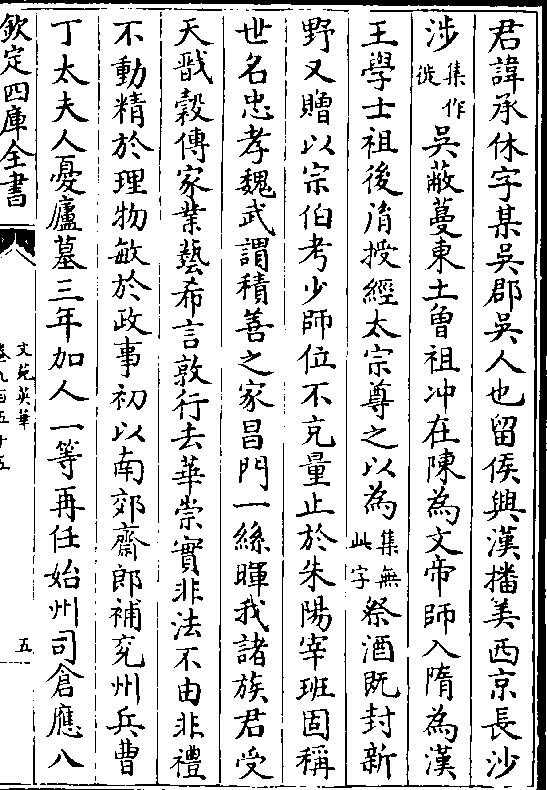 君諱承休字某吳郡吳人也留侯興漢播美西京長沙
涉集作徙吳蔽蔓東土曾祖冲在陳為文帝師入隋為漢
王學士祖後胤授經太宗尊之以為集無此字祭酒既封新
野又贈以宗伯考少師位不充量止於朱陽宰班固稱
世名忠孝魏武謂積善之家昌門一絲暉我諸族君受
天戩穀傳家業藝希言敦行去華崇實非法不由非禮
不動精於理物敏於政事初以南郊齋郎補兖州兵曹
丁太夫人憂廬墓三年加人一等再任始州司倉應八
欽定四庫全書
文苑英華
卷九百五十五
五